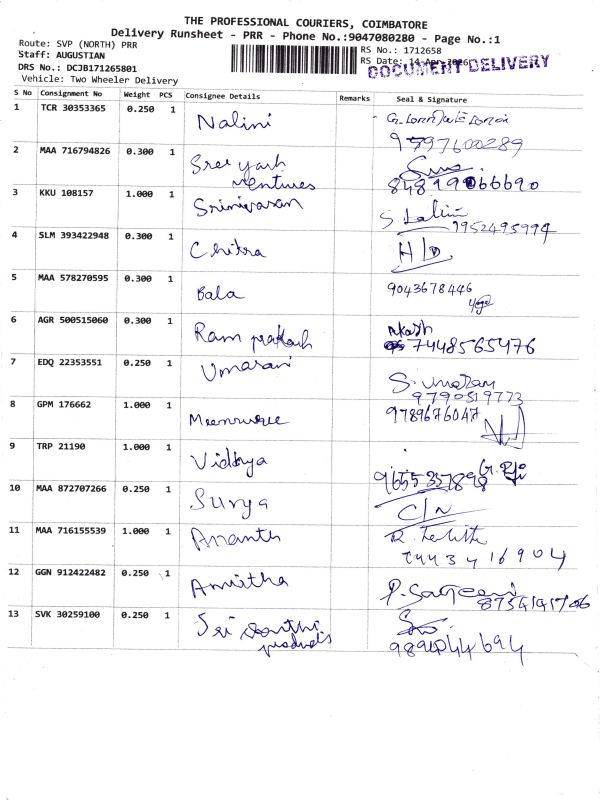 THE PROFESSIONAL COURIERS, COIMBATORE
Delivery Runsheet - PRR - Phone No.:9047080280 - Page No.:1
Route: SVP (NORTH) PRR
Staff: AUGUSTIAN
DRS No.: DCJB171265801
Vehicle: Two Wheeler Delivery
RS No.: 1712658
RS Date: 14-Apr-2026
DOCUMENT DELIVERY
S No Consignment No Weight PCS Consignee Details Remarks Seal & Signature
1 TCR 30353365 0.250 1 Nalini
9597600289
2 MAA 716794826 0.300 1 Sree yash
ventures
84899066690
3 KKU 108157 1.000 1 Srinivasan S Lalini
9952495994
4 SLM 393422948 0.300 1 Chitra H/D
5 MAA 578270595 0.300 1 Bala 9043678446
6 AGR 500515060 0.300 1 Ram prakash Akash
7448565476
7 EDQ 22353551 0.250 1 Umarani S. umarani
9790519773
8 GPM 176662 1.000 1 9789676047
9 TRP 21190 1.000 1 Vidhya
9655337898
10 MAA 872707266 0.250 1 Surya C/N
11 MAA 716155539 1.000 1 Ananth
7443416904
12 GGN 912422482 0.250 1 Amritha
13 SVK 30259100 0.250 1 Sri Santhi
products